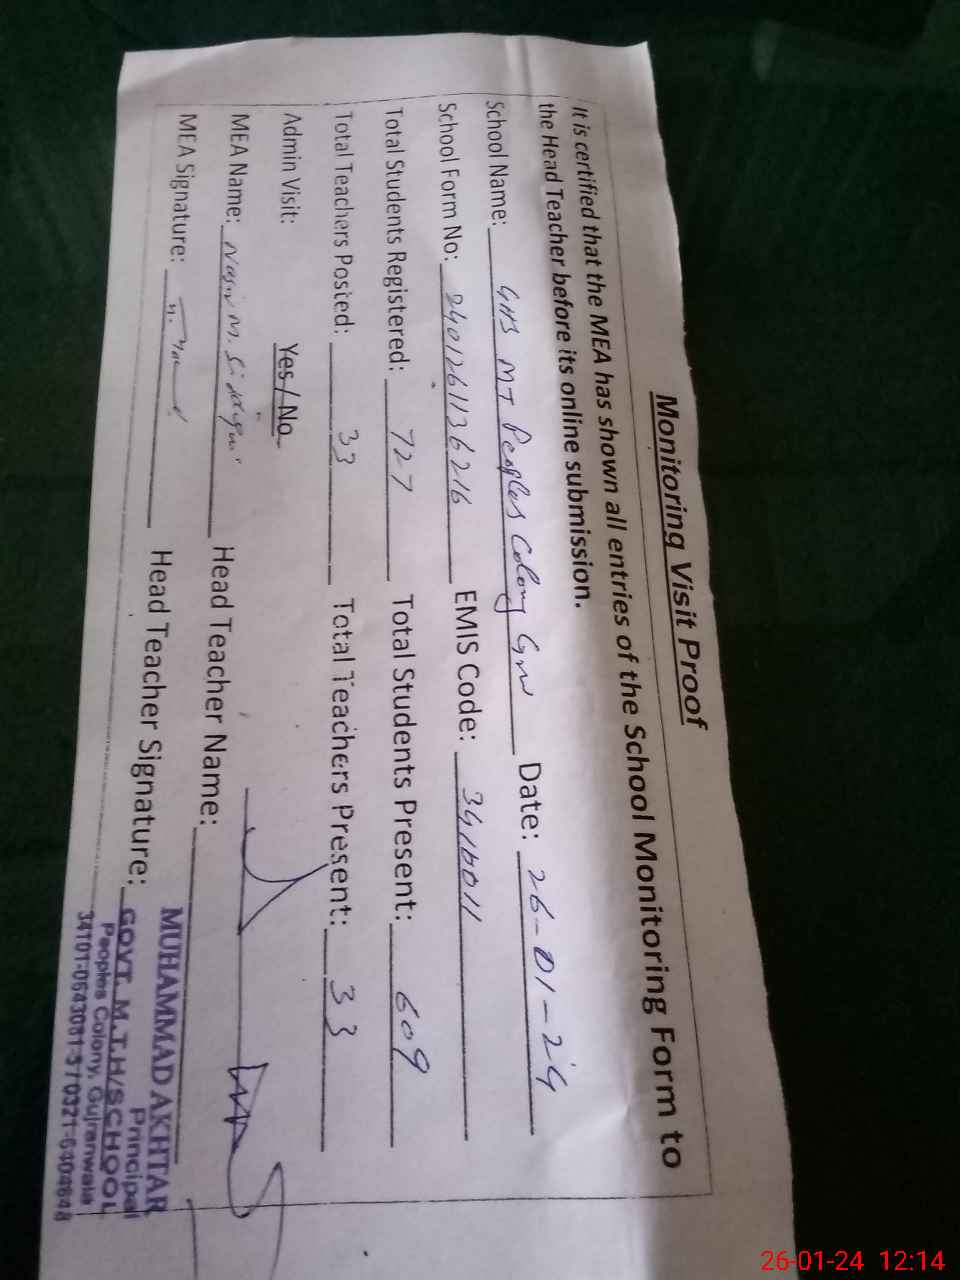 Monitoring Visit Proof
It is certified that the MEA has shown all entries of the School Monitoring Form to
the Head Teacher before its online submission.
School Name: GHS MT Peoples Colony GRW Date: 26-01-24
School Form No: 2401261136216 EMIS Code: 3410011
Total Students Registered: 727 Total Students Present: 609
Total Teachers Posted: 33 Total Teachers Present: 33
Admin Visit: Yes / No
MEA Name: Nasir M. Siddiqui Head Teacher Name:
MEA Signature: Head Teacher Signature:
MUHAMMAD AKHTAR
Principal
GOVT. M.T.H/SCHOOL
Peoples Colony, Gujranwala
26-01-24 12:14